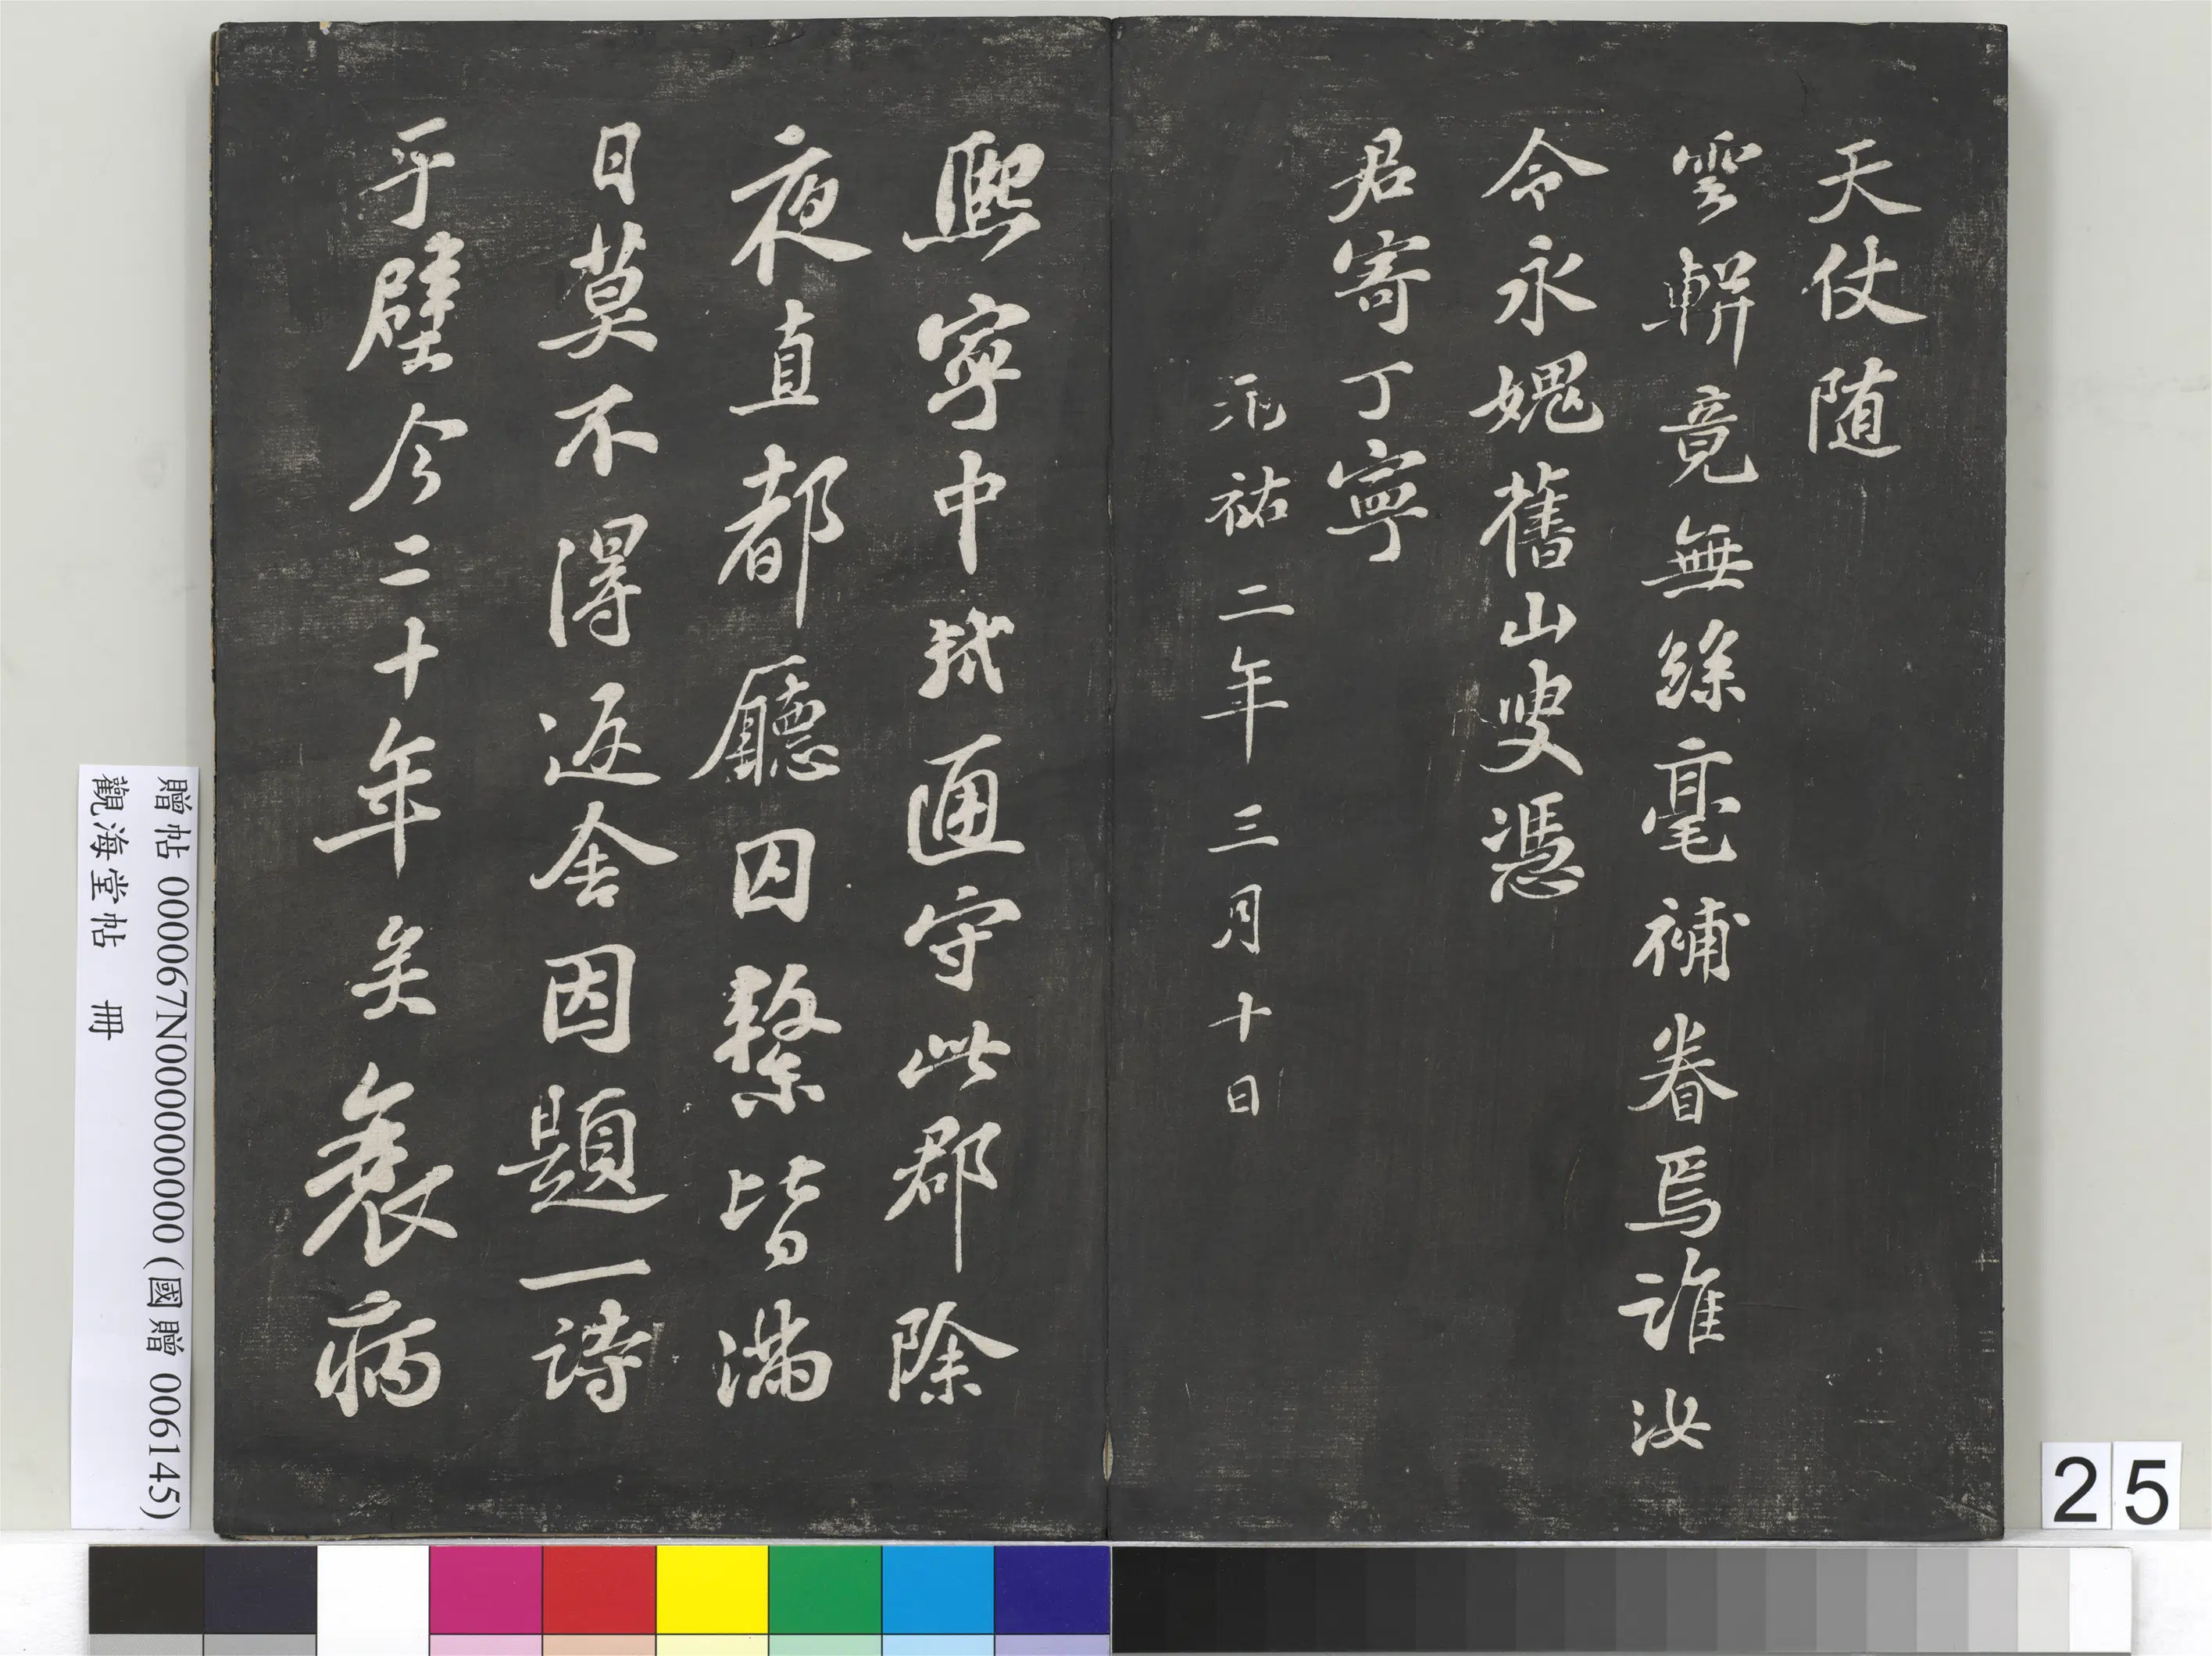 天仗随
雲軿竟無絲毫補眷焉誰汝
令永媿舊山叟憑
君寄丁寧
元祐二年三月十日
熙寧中軾通守此郡除
夜直都廳囚繫皆滿
日莫不得返舍因題一詩
于壁今二十年矣衰病
贈帖 000067N000000000 (國贈 006145)
觀海堂帖 冊
25